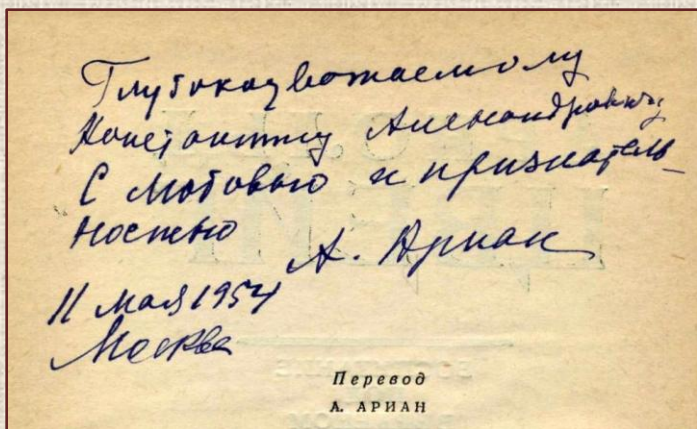 Глубокоуважаемому
Константину Александровичу
С любовью и признатель-
ностью
А. Ариан
11 мая 1954
Москва
Перевод
А. АРИАН